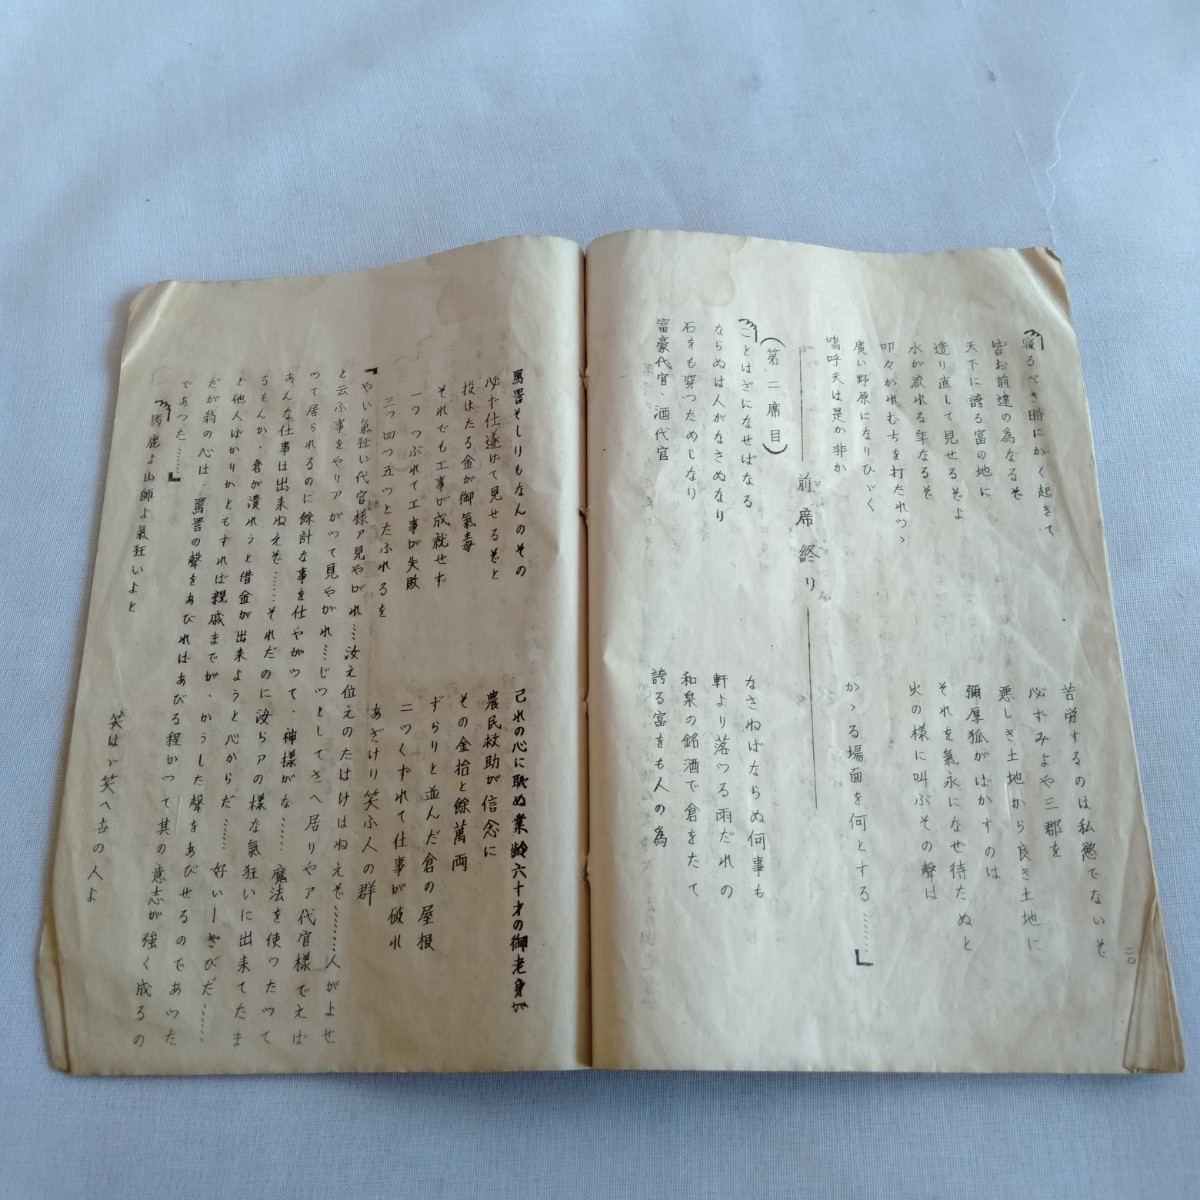 寝るべき時にかく起きて
苦労するのは私慾でないぞ
皆お前達の為なるぞ
必ずみよや三郡を
天下に誇る富の地に
悪しき土地から良き土地に
造り直して見せるぞよ
彌厚狐がばかすのは
水が流れる年なるぞ
それを氣永になせ待たぬと
叩々かれむち打たれつゝ
火の様に叫ぶその聲は
廣い野原になりひゞく
嗚呼天は是か非か
かゝる場面を何とする……」
前席終り
(第二席目)
ことはざになせばなる
なさねばならぬ何事も
ならぬは人がなさぬなり
軒より落つる雨だれの
石をも穿つためしなり
和泉の銘酒で倉をたて
富豪代官、酒代官
誇る富をも人の為
二〇
罵詈そしりもなんのその
己れの心に恥ぬ業齢六十才の御老身が
必ず仕遂げて見せるぞと
農民救助が信念に
投じたる金が御氣毒
その金拾と餘萬両
それでも工事が成就せず
ずらりと並んだ倉の屋根
一つつぶれて工事が失敗
二つくずれて仕事が破れ
三つ四つ五つとたふれるを
あざけり笑ふ人の群
『やい氣狂い代官様ア見やがれ…汝え位えのたはけはねえぞ………人がよせ
と云ふ事をやりアがつて見やがれ…じつとしてさへ居りやア代官様でえば
つて居られるのに餘計な事を仕やがつて、神様がな……魔法を使つたつて
あんな仕事は出来ねえぞ……それだのに汝らアの様な氣狂いに出来てたま
るもんか、君が潰れうと借金が出来ようと心からだ……好いーきびだ……
と他人ばかりかともすれば親戚までが、かうした聲をあびせるのであつた
だが翁の心は、罵詈の聲をあびればあびる程かつて其の意志が強く成るの
であつた……』
馬鹿よ山師よ氣狂いよと
笑はゞ笑へ去の人よ